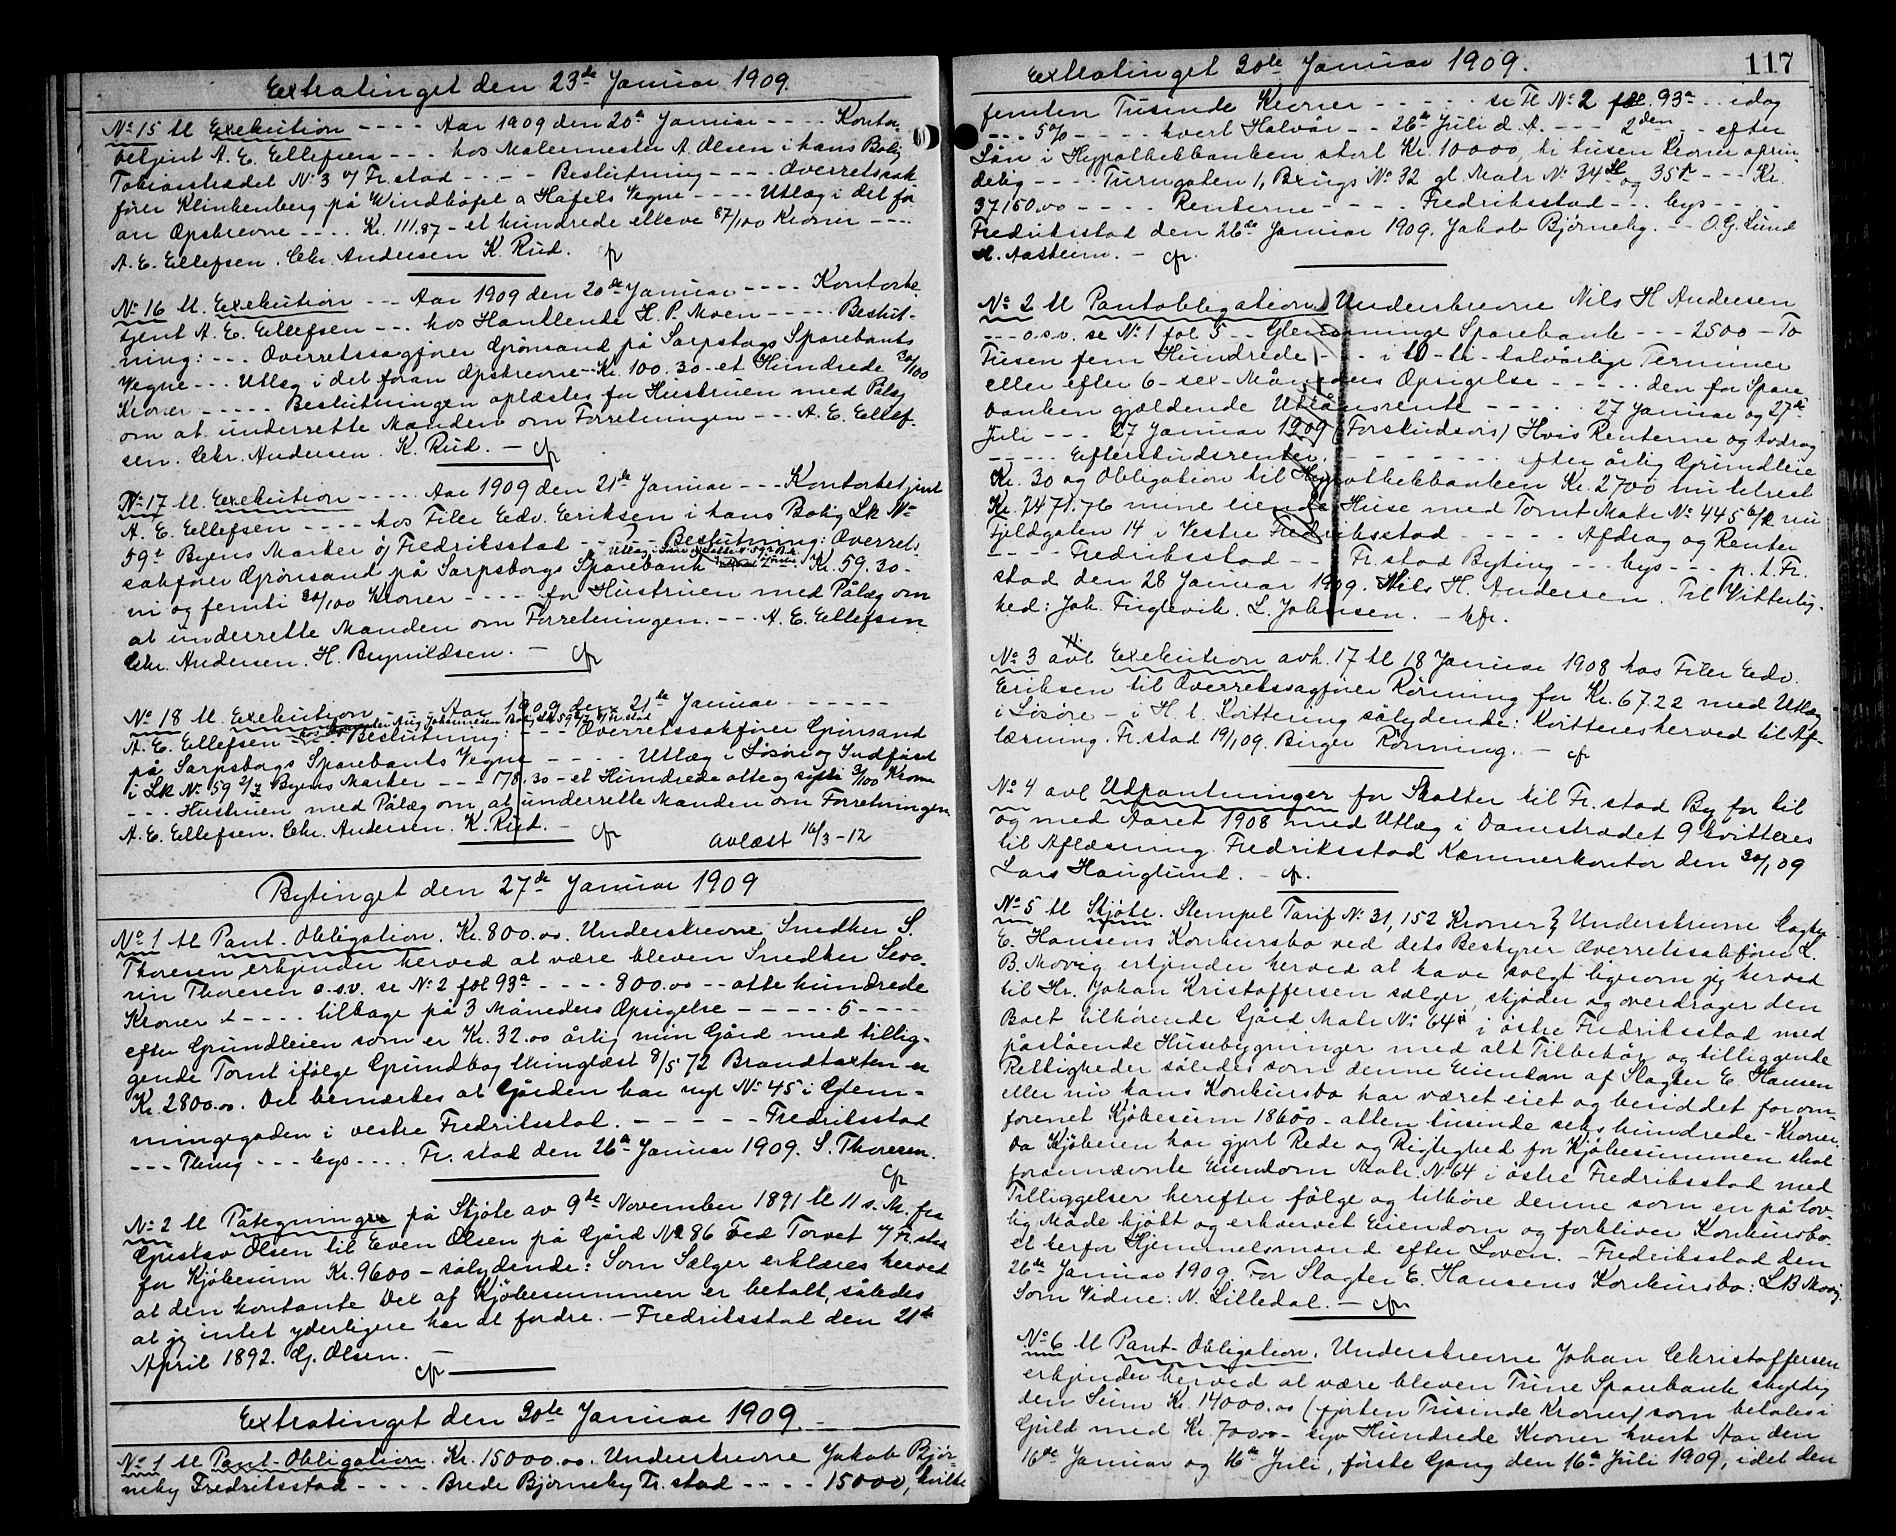 Extratinget den 23de Januar 1909.
No 15 tl Exekution - - - - Aar 1909 den 20de Januar - - - - Kontor-
betjent A. E. Ellefsen - - - hos Malermester A. Olsen i hans Bolig
Tobiasstrædet No 3 v/ Fr.stad - - - - Beslutning - - - Overretssak-
fører Klinkenberg på Windhöfel a Hafels Vegne - - - - Utlæg i det for
an Opskrevne - - - - Kr. 111.87 - et hundrede elleve 87/100 Kroner - - - -
A. E. Ellefsen. Chr. Andersen K. Rud. cfr
No 16 tl. Exekution - - - Aar 1909 den 20de Januar - - - - Kontorbe-
tjent A. E. Ellefsen - - - hos Handlende H. P. Moen - - - - - Beslut-
ning: - - - Overretssagfører Grönsand på Sarpsborgs Sparebanks
Vegne - - - Utlæg i det foran Opskrevne - Kr. 100.30 - et Hundrede 30/100
Kroner - - - - - Beslutningen oplæstes for Hustruen med Pålæg
om at underrette Manden om Forretningen - - - A. E. Ellef-
sen. Chr. Andersen. K. Rud. - cfr
No 17 tl. Exekution - - - - - Aar 1909 den 21de Januar - - - Kontorbetjent
A. E. Ellefsen - - - - hos Filer Edv. Eriksen i hans Bolig Lk No
59t Byens Marker v/ Fredriksstad - - - - - Beslutning: Overrets-
sakfører Grönsand på Sarpsborgs Sparebank - - - Kr. 59.30 -
ni og femti 30/100 Kroner - - - - for Hustruen med Pålæg om
at underrette Manden om Forretningen. - - - A. E. Ellefsen
Chr. Andersen. H. Brynildsen. - cfr
No 18 tl. Exekution - - - Aar 1909 den 21de Januar - - - - - -
A. E. Ellefsen - - - Beslutning: - - - Overretssakfører Grönsand
på Sarpsborgs Sparebanks Vegne - - - - - Utlæg i Lösöre og Indföret
i Lk No 59 Byens Marker - - - 178.30 - et Hundrede otte og sytti 30/100 Kroner
- - - Hustruen med Pålæg om at underrette Manden om Forretningen
A. E. Ellefsen. Chr. Andersen. K. Rud. - cfr avlæst 16/3-12
Bytinget den 27de Januar 1909
No 1 tl Pant-Obligation. Kr. 800.00. Underskrevne Snedker S.
Thoresen erkjender herved at være bleven Snedker Seve-
rin Thoresen o.s.v. se No 2 fol 93a - - - - 800.00 - - otte hundrede
Kroner - - - - - tilbage på 3 Måneders Opsigelse - - - - - 5 - - - -
efter Grundleien som er Kr. 32.00 årlig min Gård med tillig-
gende Tomt ifølge Grundbog thinglæst 8/5 72 Brandtaxten er
Kr. 2800.00. Det bemærkes at Gården har nyt No 45 i Glem-
mingegaden i vestre Fredriksstad. - - - - - Fredriksstad
- - - Thing - - - bys - - - - Fr. stad den 26de Januar 1909. S. Thoresen.
cfr
No 2 tl Påtegning på Skjöte av 9de November 1891 tl 11 s. M. fra
Gustav Olsen til Even Olsen på Gård No 86 ved Torvet v/ Fr.stad
for Kjöbesum Kr. 9600 - sålydende: Som Sælger erklæres herved
at den kontante Del af Kjöbesummen er betalt, således
at jeg intet yderligere har at fordre. - Fredriksstad den 21de
April 1892. G. Olsen. -
cfr
Extratinget den 30te Januar 1909. -
No 1 tl Pant-Obligation. Kr. 15000.00. Underskrevne Jakob Bjør-
neby Fredriksstad - - - - Brede Bjørneby Fr. stad - - - - 15000, hvilke
Extratinget 30te Januar 1909. 117
femten Tusinde Kroner - - - - - se Tl No 2 fol. 93a - - idag
- - - 5% - - - - - hvert Halvår - - 26de Juli d. A. - - - 2den - - efter
Lån i Hypothekbanken stort Kr. 10000, ti tusen Kroner oprin-
delig - - - - Turngaten 1, Brugs No 32 gl. Matr No 34 og 35 - - - Kr.
37150.00 - - - - - Renterne - - - - - Fredriksstad - - - bys - - - -
Fredriksstad den 26de Januar 1909. Jakob Bjørneby. - - O. G. Lund
A. Aasheim. - cfr.
No 2 tl Pantobligation Underskrevne Nils H Andersen
- - - o.s.v. se No 1 fol 5 - Glemminge Sparebank - - - 2500 - To
Tusen fem Hundrede - - - i 10 - ti - halvårlige Terminer
eller efter 6 - sex - Måneders Opsigelse - - - - - den for Spare-
banken gjældende Utlånsrente - - - - - 27 Januar og 27de
Juli - - - 27 Januar 1909 (Forskudsvis) Hvis Renterne og Avdrag
- - - - - Efterskudsrenter - - - - - - - - - efter årlig Grundleie
Kr. 30 og Obligation til Hypothekbanken Kr. 2700 nu tilrest
Kr. 2471.76 mine eiende Huse med Tomt Matr No 445 b/k nu
Fjeldgaten 14 i Vestre Fredriksstad - - - - - Afdrag og Renter
- - - - Fredriksstad - - - Fr.stad Byting - - - bys - - - p. t. Fr.
stad den 28 Januar 1909. Nils H. Andersen. Til Vitterlig-
hed: Joh. Fuglevik. L. Johnsen. - cfr.
No 3 avl Exekution avh. 17 tl 18 Januar 1908 hos Filer Edv.
Eriksen til Overretssagfører Rönning for Kr. 67.22 med Utlæg
i Lösöre - i H. t. Kvittering sålydende: Kvitteres herved til Af-
læsning. Fr.stad 19/1 09. Birger Rönning. - cfr
No 4 avl Udpantninger for Skatter til Fr.stad By for til
og med Aaret 1908 med Utlæg i Damstrædet 9 kvitteres
til Aflæsning. Fredriksstad Kæmnerkontor den 30/1 09
Lars Hauglund. - cfr.
No 5 tl Skjöte. Stempel Tarif No 31, 152 Kroner Underskrevne Slagter
E. Hansens Konkursbo ved dets Bestyrer Overretssakfører L.
B. Movig erkjender herved at have solgt ligesom jeg herved
til Hr. Johan Kristoffersen sælger, skjøder og overdrager den
Boet tilhørende Gård Matr No 64 i østre Fredriksstad med
påstående Husebygninger med alt Tilbehör og tilliggende
Rettigheder således som denne Eiendom af Slagter E. Hansen
eller nu hans Konkursbo har været eiet og besiddet for om-
forenet Kjöbesum 18600 - atten tusende seks hundrede - Kroner.
Da Kjöberen har gjort Rede og Rigtighed for Kjöbesummen skal
forannævnte Eiendom Matr. No 64 i østre Fredriksstad med
Tilliggelser herefter følge og tilhöre denne som en på lov-
lig Måde kjöbt og erhvervet Eiendom og forbliver Konkursbo-
et herfor Hjemmelsmand efter Loven. - Fredriksstad den
26de Januar 1909. For Slagter E. Hansens Konkursbo: L B Movig.
Som Vidne: N. Lilledal. - cfr
No 6 tl Pant-Obligation. Underskrevne Johan Christoffersen
erkjender herved at være bleven Tune Sparebank skyldig
den Sum Kr. 14000.00 (fjorten Tusinde Kroner) som betales i
Guld med Kr. 700.00 - syv Hundrede Kroner hvert Aar den
16de Januar og 16de Juli, første Gang den 16de Juli 1909, idet den